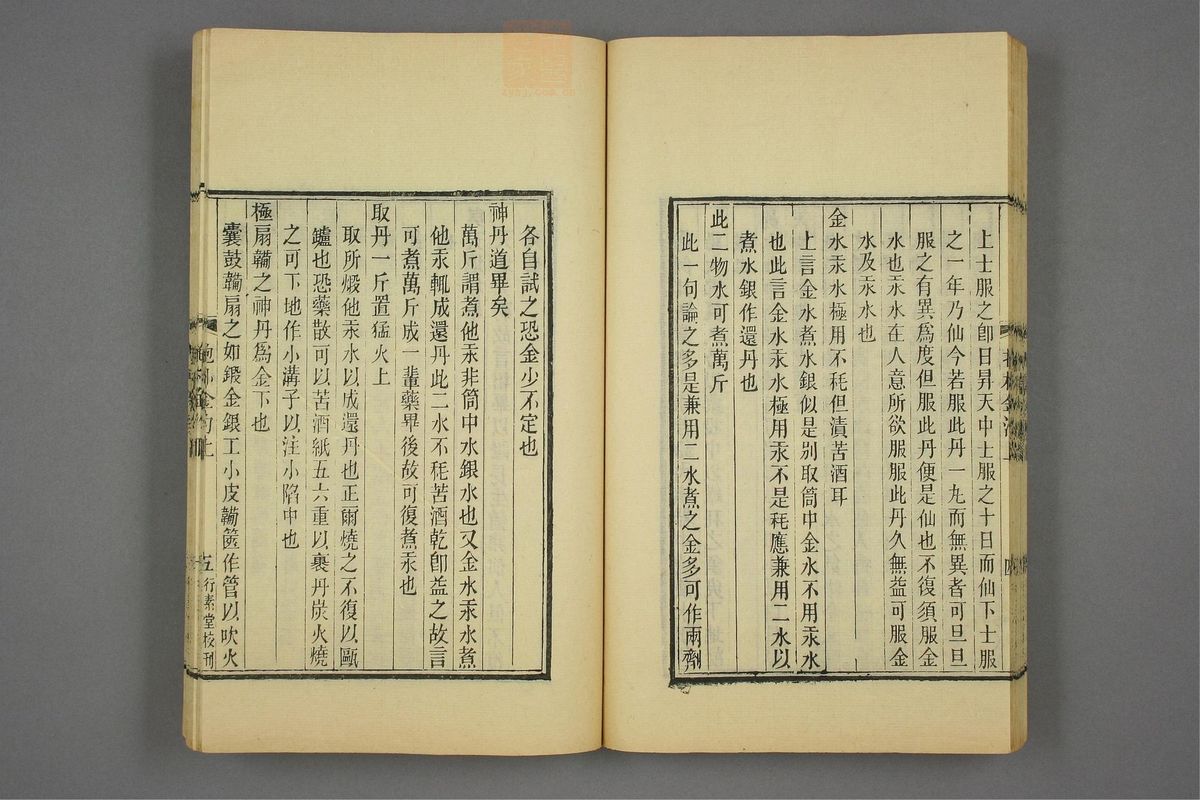 上士服之卽日昇天中士服之十日而仙下士服
之一年乃仙今若服此丹一丸而無異者可旦旦
服之有異爲度但服此丹便是仙也不復須服金
水也汞水在人意所欲服服此丹久無益可服金
水及汞水也
金水汞水極用不秏但漬苦酒耳
上言金水煮水銀似是別取筒中金水不用汞水
也此言金水汞水極用汞不是秏應兼用二水以
煮水銀作還丹也
此二物水可煮萬斤
此一句論之多是兼用二水煮之金多可作兩劑
各自試之恐金少不定也
神丹道畢矣
萬斤謂煮他汞非筒中水銀水也又金水汞水煮
他汞輒成還丹此二水不秏苦酒乾卽益之故言
可煮萬斤成一輩藥畢後故可復煮汞也
取丹一斤置猛火上
取所煅他汞水以成還丹也正爾燒之不復以甌
鑪也恐藥散可以苦酒紙五六重以裹丹炭火燒
之可下地作小溝子以注小陷中也
極扇韛之神丹爲金下也
囊鼓韛扇之如鍛金銀工小皮韛篋作管以吹火
五 行素堂校刊